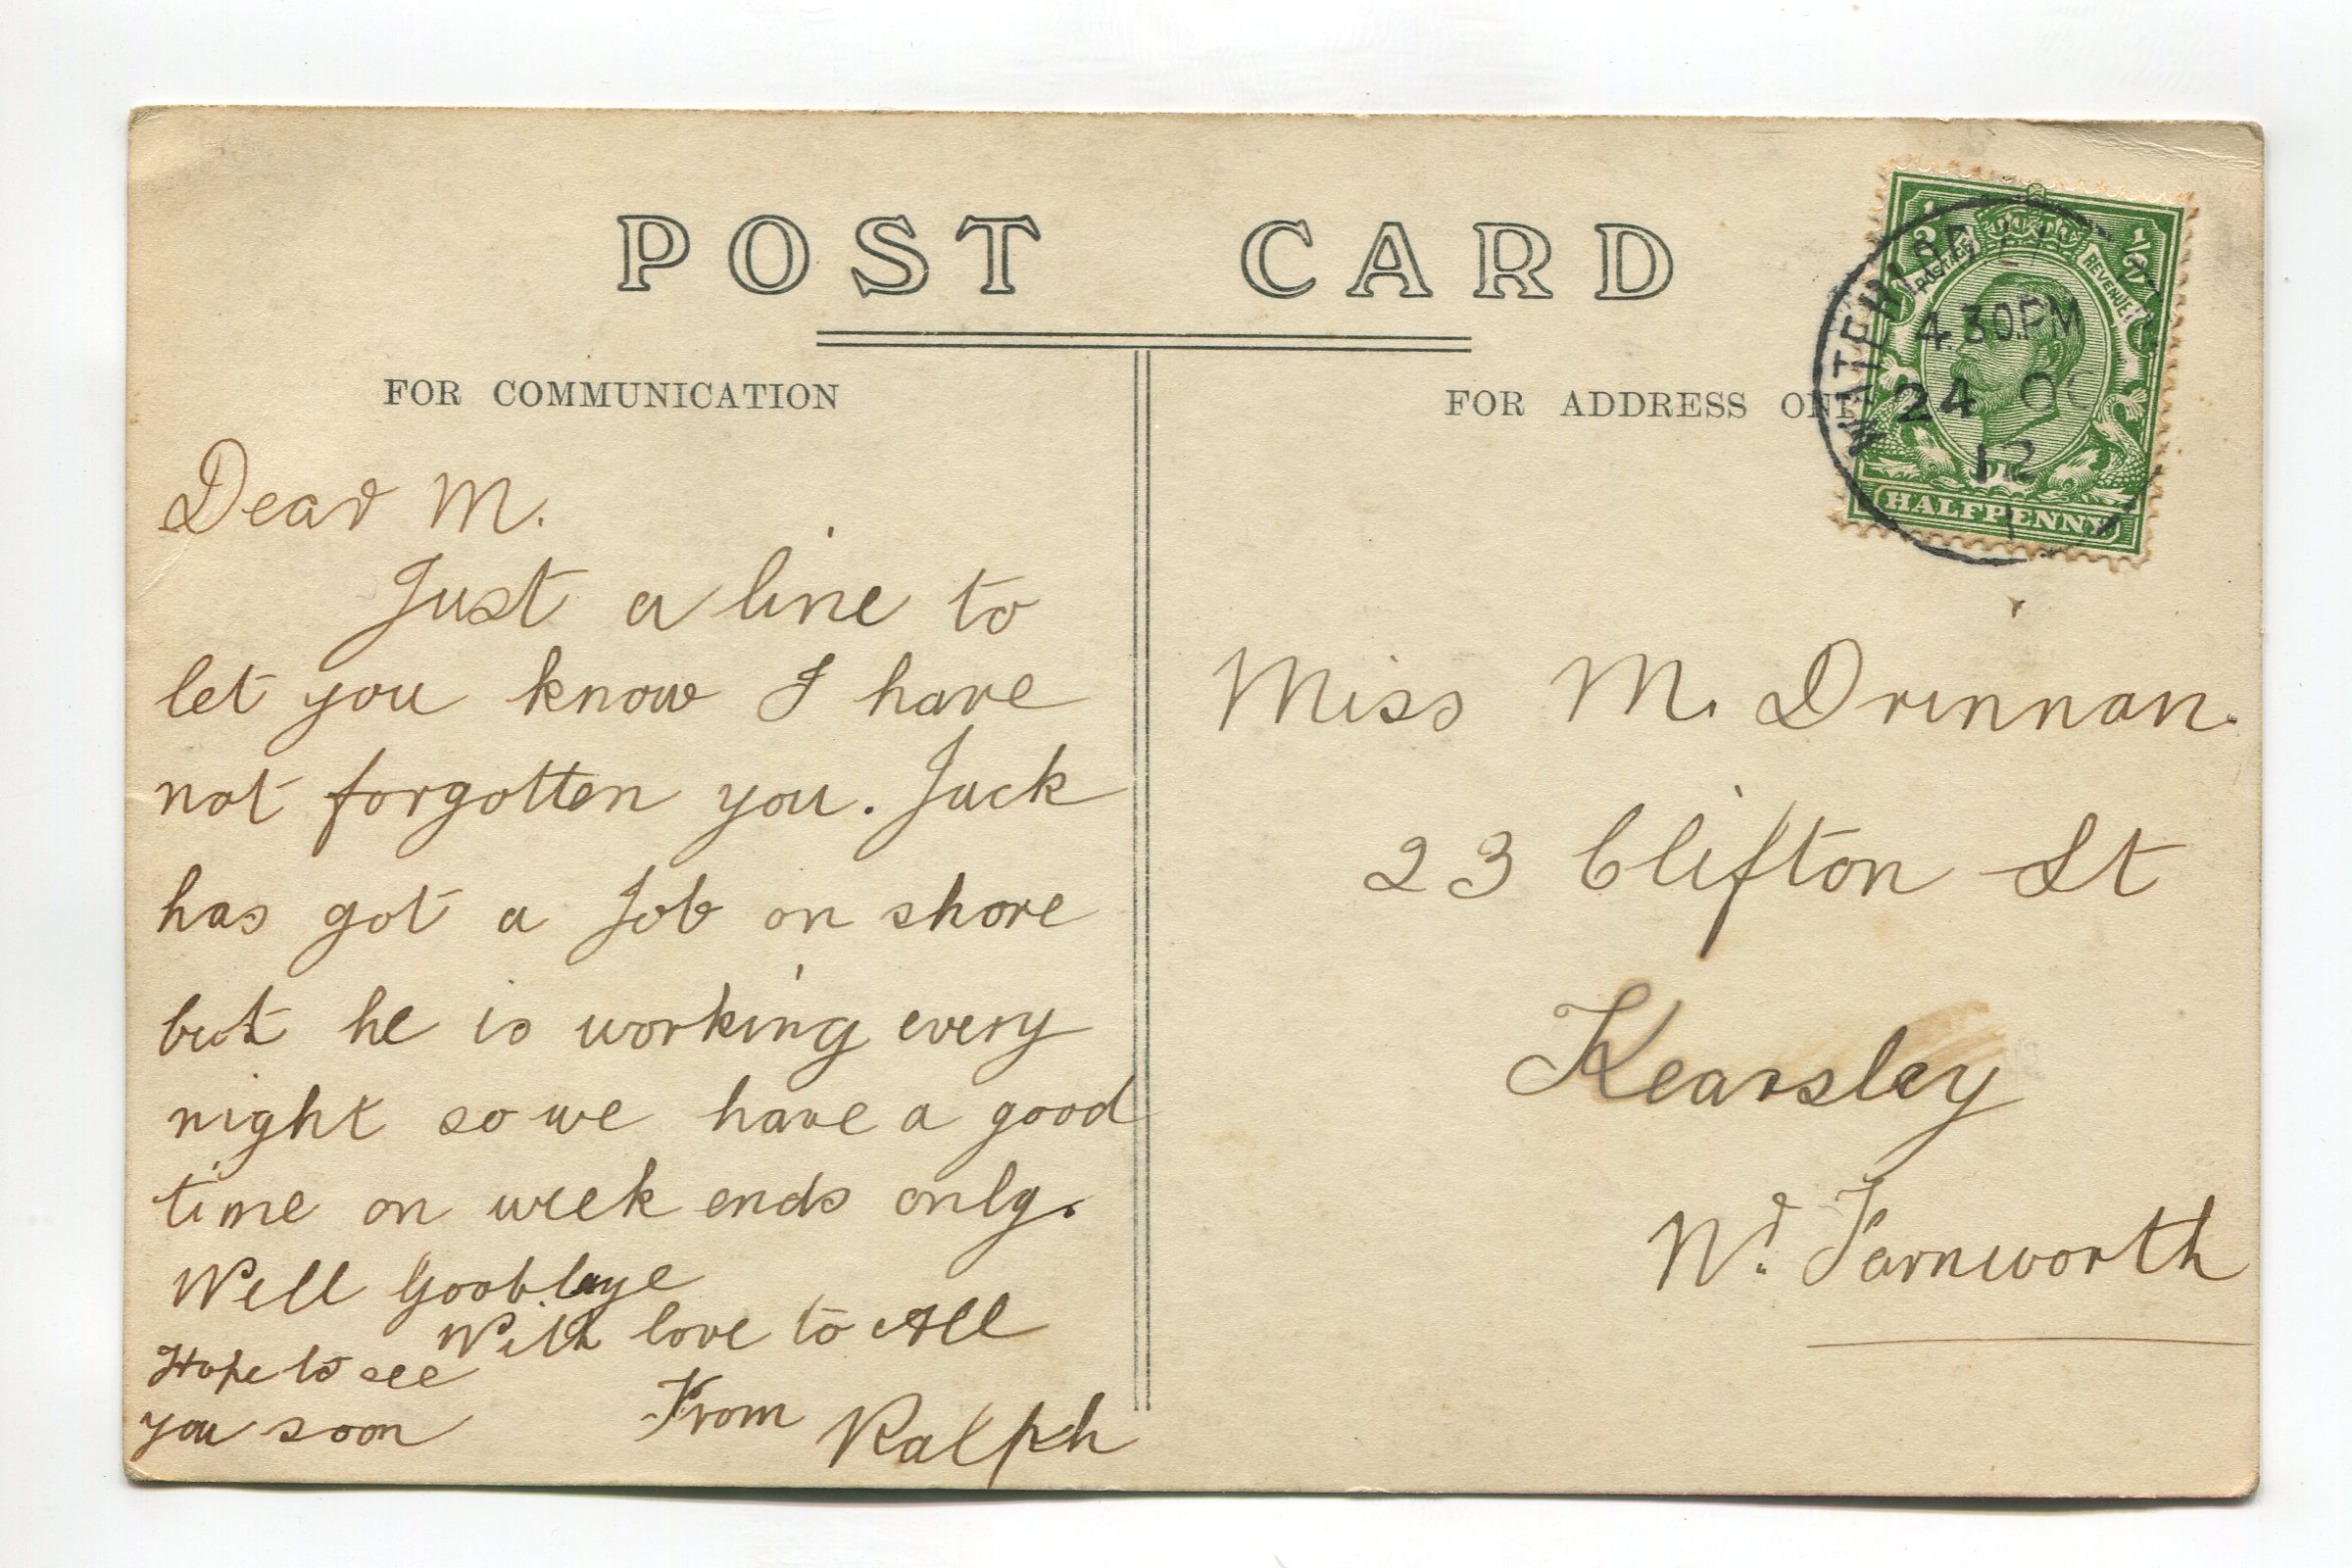 POST CARD
FOR COMMUNICATION
Dear M.
Just a line to
let you know I have
not forgotten you. Jack
has got a Job on shore
but he is working every
night so we have a good
time on week ends only.
Well Goodbye
With love to All
Hope to see
you soon
From Ralph
FOR ADDRESS
½ ½
POSTAGE REVENUE
HALFPENNY
4.30PM
24 OC
12
Miss M. Drinnan.
23 Clifton St
Kearsley
Nr. Farnworth